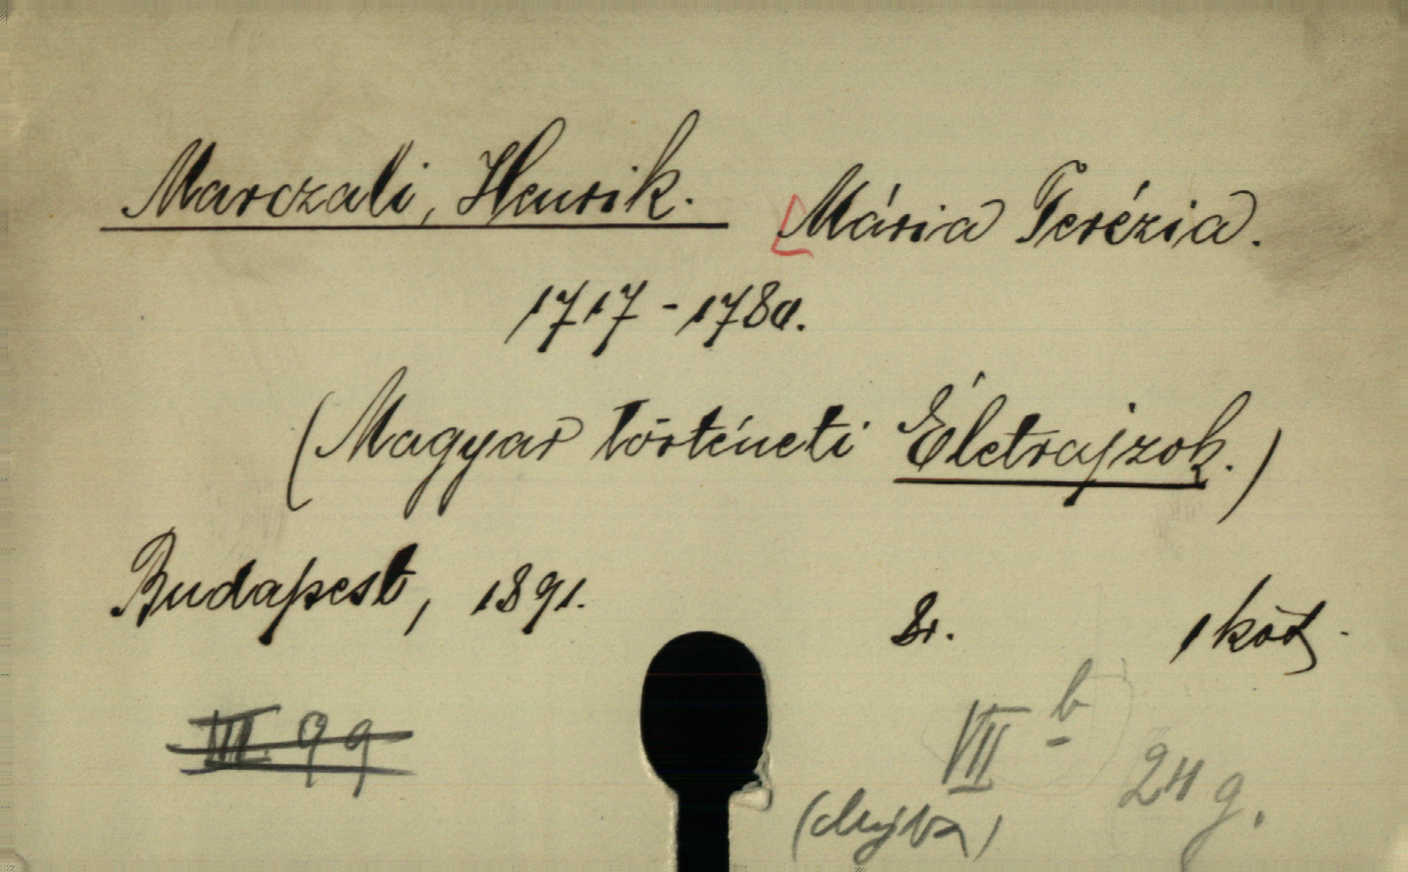 Marczali, Henrik. Mária Terézia.
1717-1780.
(Magyar történeti Életrajzok.)
Budapest, 1891. 8r. 1 köt.
III. 99
VII b
24 g.